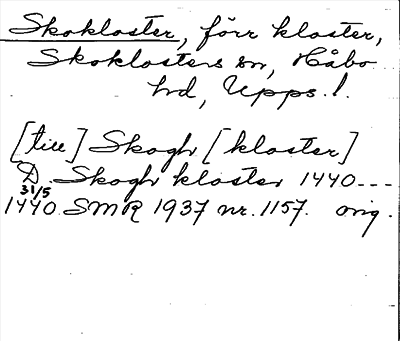 Skokloster, förr kloster,
Skoklosters sn, Håbo
hd, Upps. l.
[till] Skogh [kloster]
D. Skogh kloster 1440 ---
31/5
1440 SMR 1937 nr. 1157. orig.